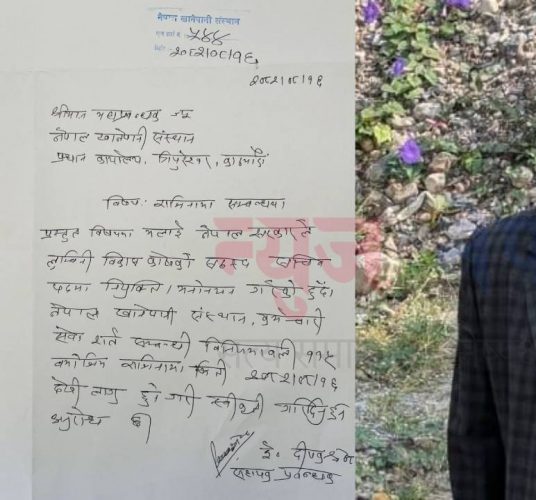 नेपाल खानेपानी संस्थान
५४४
२०८२।०८।१६
२०८२।०८।१६
श्रीमान महाप्रबन्धक ज्यू
नेपाल खानेपानी संस्थान
प्रधान कार्यालय, त्रिपुरेश्वर, काठमाडौं
विषय: राजिनामा सम्बन्धमा
प्रस्तुत विषयमा मलाई नेपाल सरकारले
लुम्बिनी विकास कोषको सदस्य सचिव
पदमा नियुक्ति, मनोनयन गरेको हुँदा
नेपाल खानेपानी संस्थान, कर्मचारी
सेवा शर्त सम्बन्धी विनियमावली
बमोजिम राजिनामा मिति २०८२।०८।१६
देखी लागु हुने गरी स्वीकृती गरिदिनु हुन
अनुरोध छ।
ई. दीपक
सहायक प्रबन्धक
न्युज